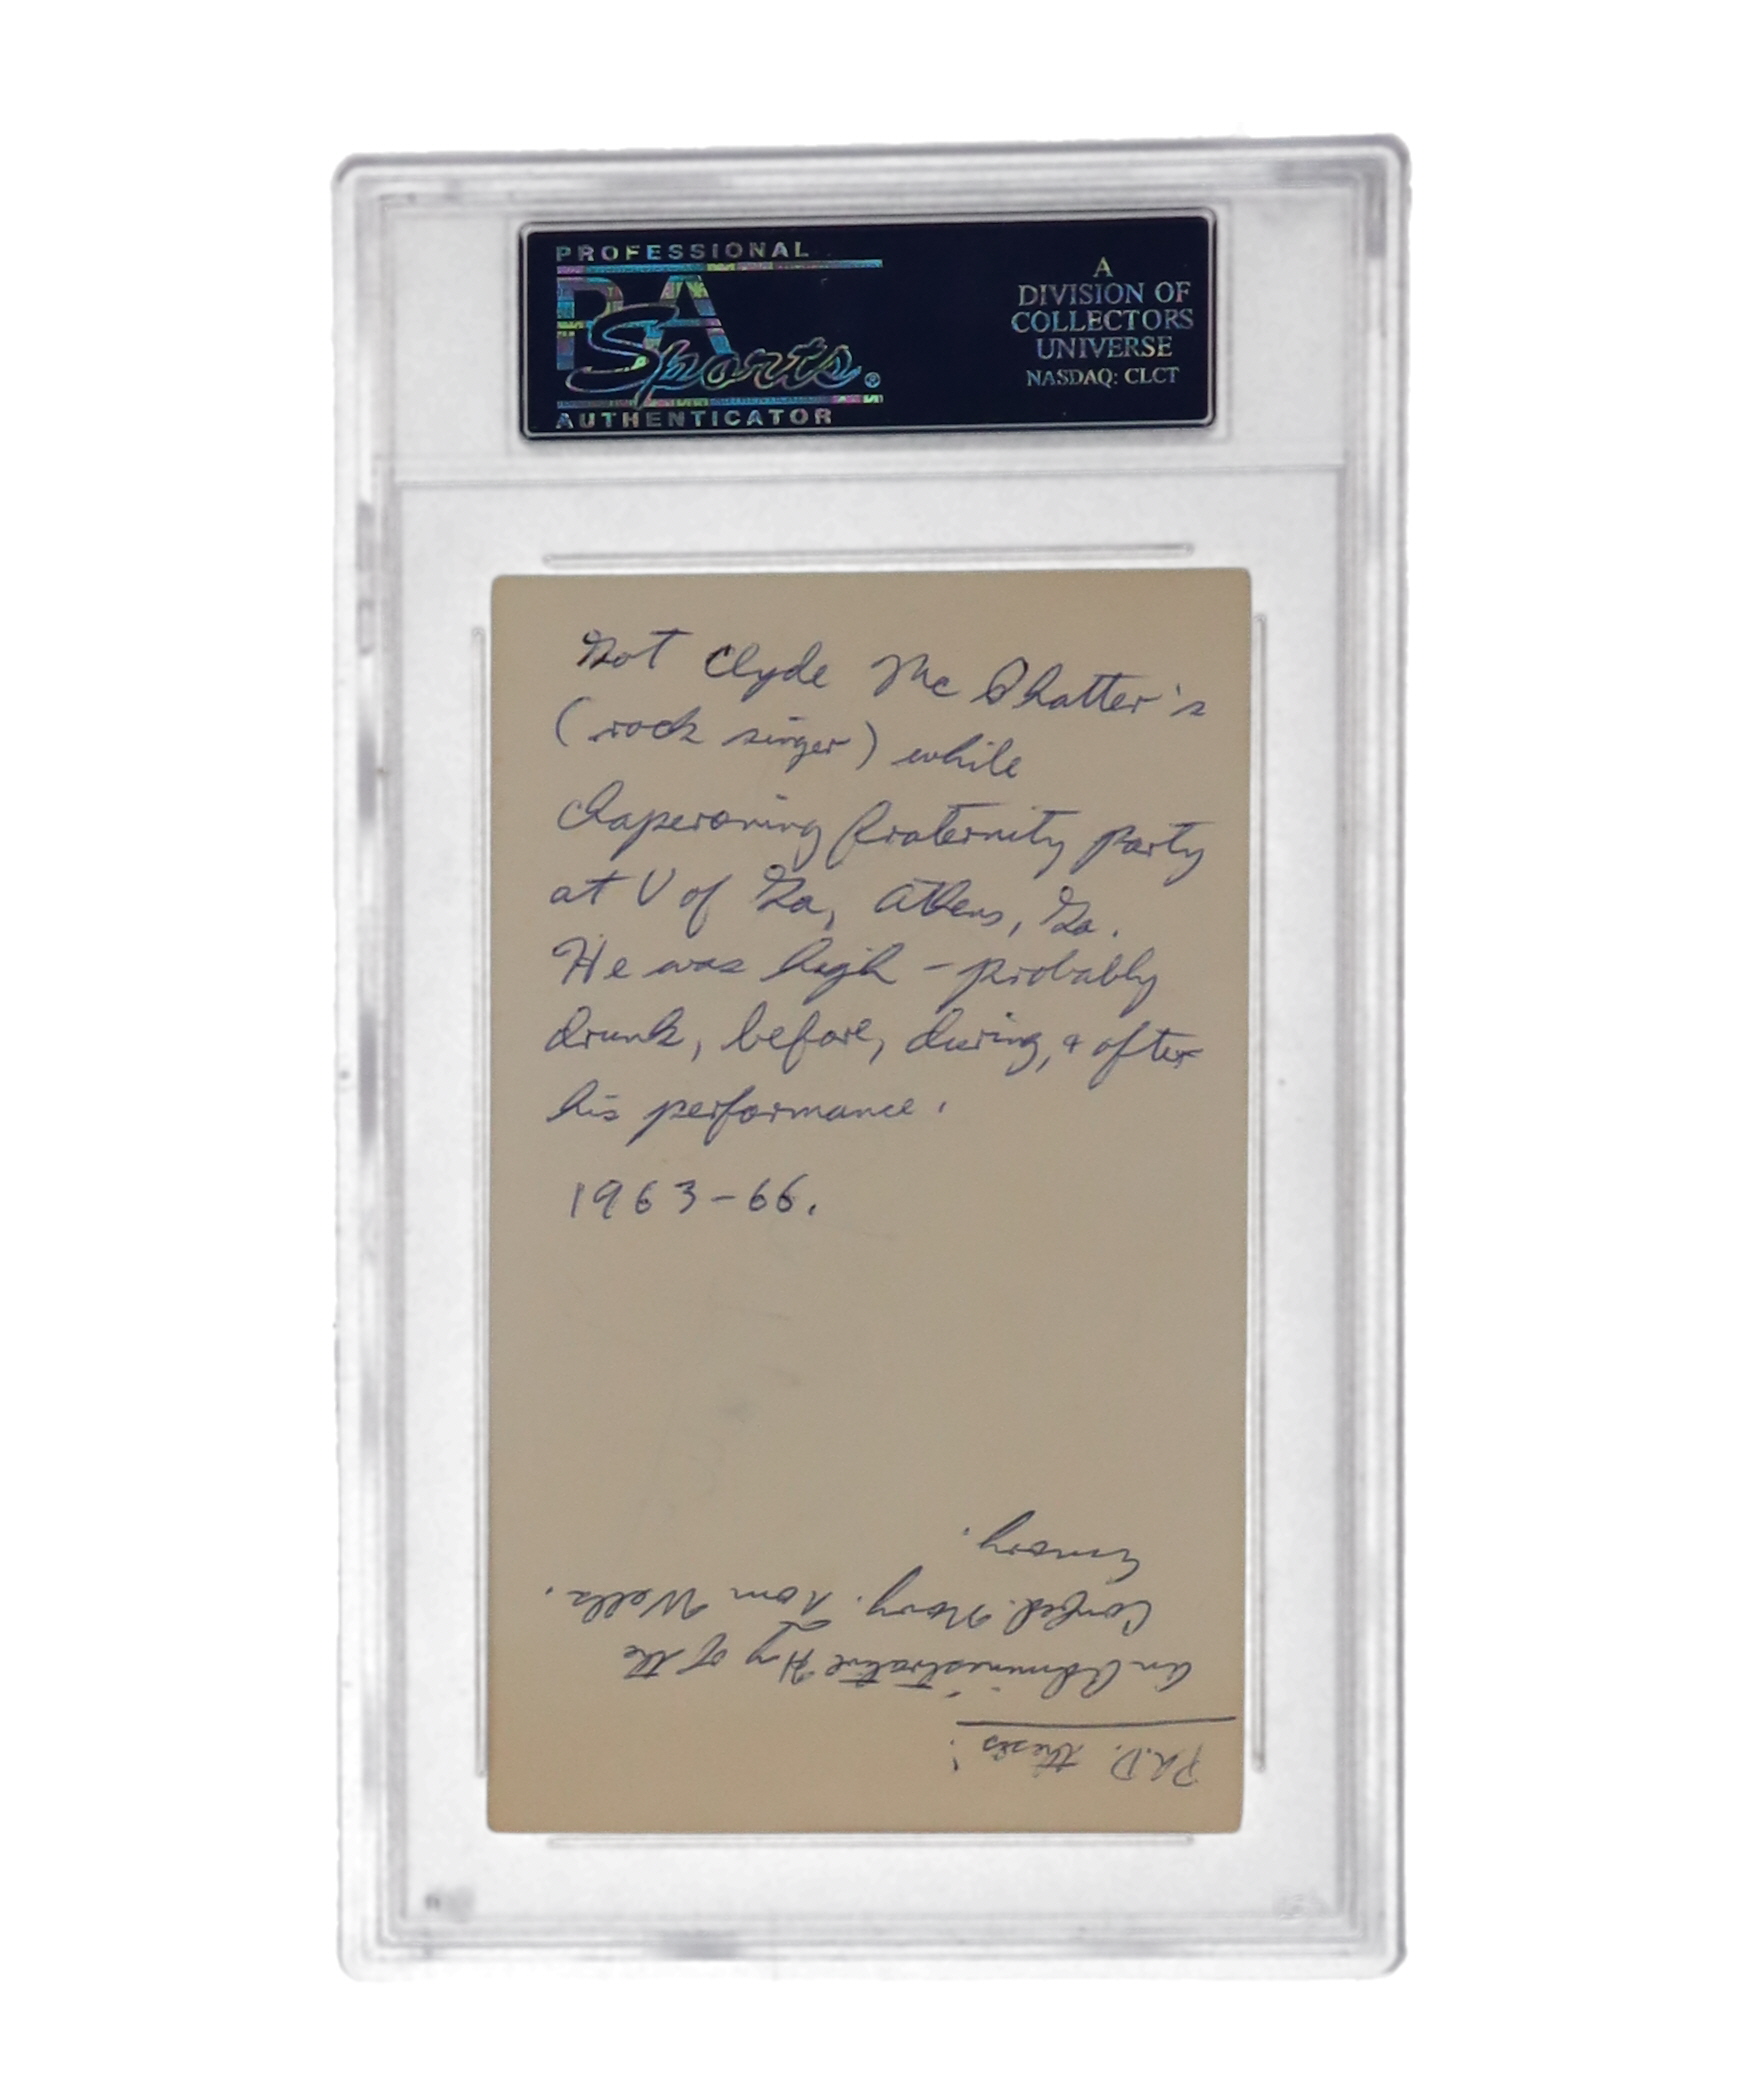 PROFESSIONAL
PSA
Sports®
AUTHENTICATOR
A
DIVISION OF
COLLECTORS
UNIVERSE
NASDAQ: CLCT
Got Clyde McPhatter's
(rock singer) while
chaperoning fraternity party
at U of Ga, Athens, Ga.
He was high - probably
drunk, before, during, & after
his performance.
1963-66.
Ph.D. thesis:
An Administrative Hy of the
Confed. Navy. Tom Wells.
Emory.